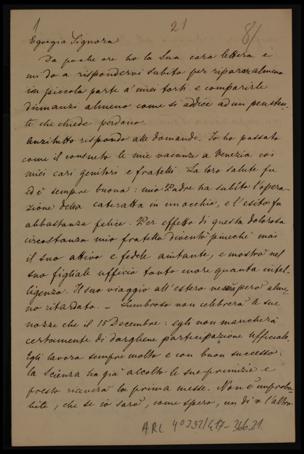 1
21
8/
Egregia Signora
Da poche ore ho la Sua cara lettera e
mi do a risponderVi subito per riparare almeno
in piccola parte a' miei torti e comparirLe
dinnanzi almeno come si addice ad un peniten-
te che chiede perdono.
Anzitutto rispondo alle domande. Io ho passato
come il consueto le mie vacanze a Venezia coi
miei cari genitori e fratelli. La loro salute fu
ed è sempre buona: mio Padre ha subito l'opera-
zione della cateratta in un occhio, e l'esito fu
abbastanza felice. Per effetto di questa dolorosa
circostanza mio fratello diventò più che mai
il suo attivo e fedele aiutante, e mostrò nel
suo figliale ufficio tanto cuore quanta intel-
ligenza. Il suo viaggio all'estero ne sarà però alme-
no ritardato. — Lombroso non celebrerà le sue
nozze che il 10 Decembre: egli non mancherà
certamente di dargliene partecipazione ufficiale.
Egli lavora sempre molto e con buon successo:
la scienza ha già accolto le sue primizie e
presto riceverà la prima messe. Non è impossi-
bile, che se io sarò, come spero, un dì o l'altro
ARL 40232/417-266.21